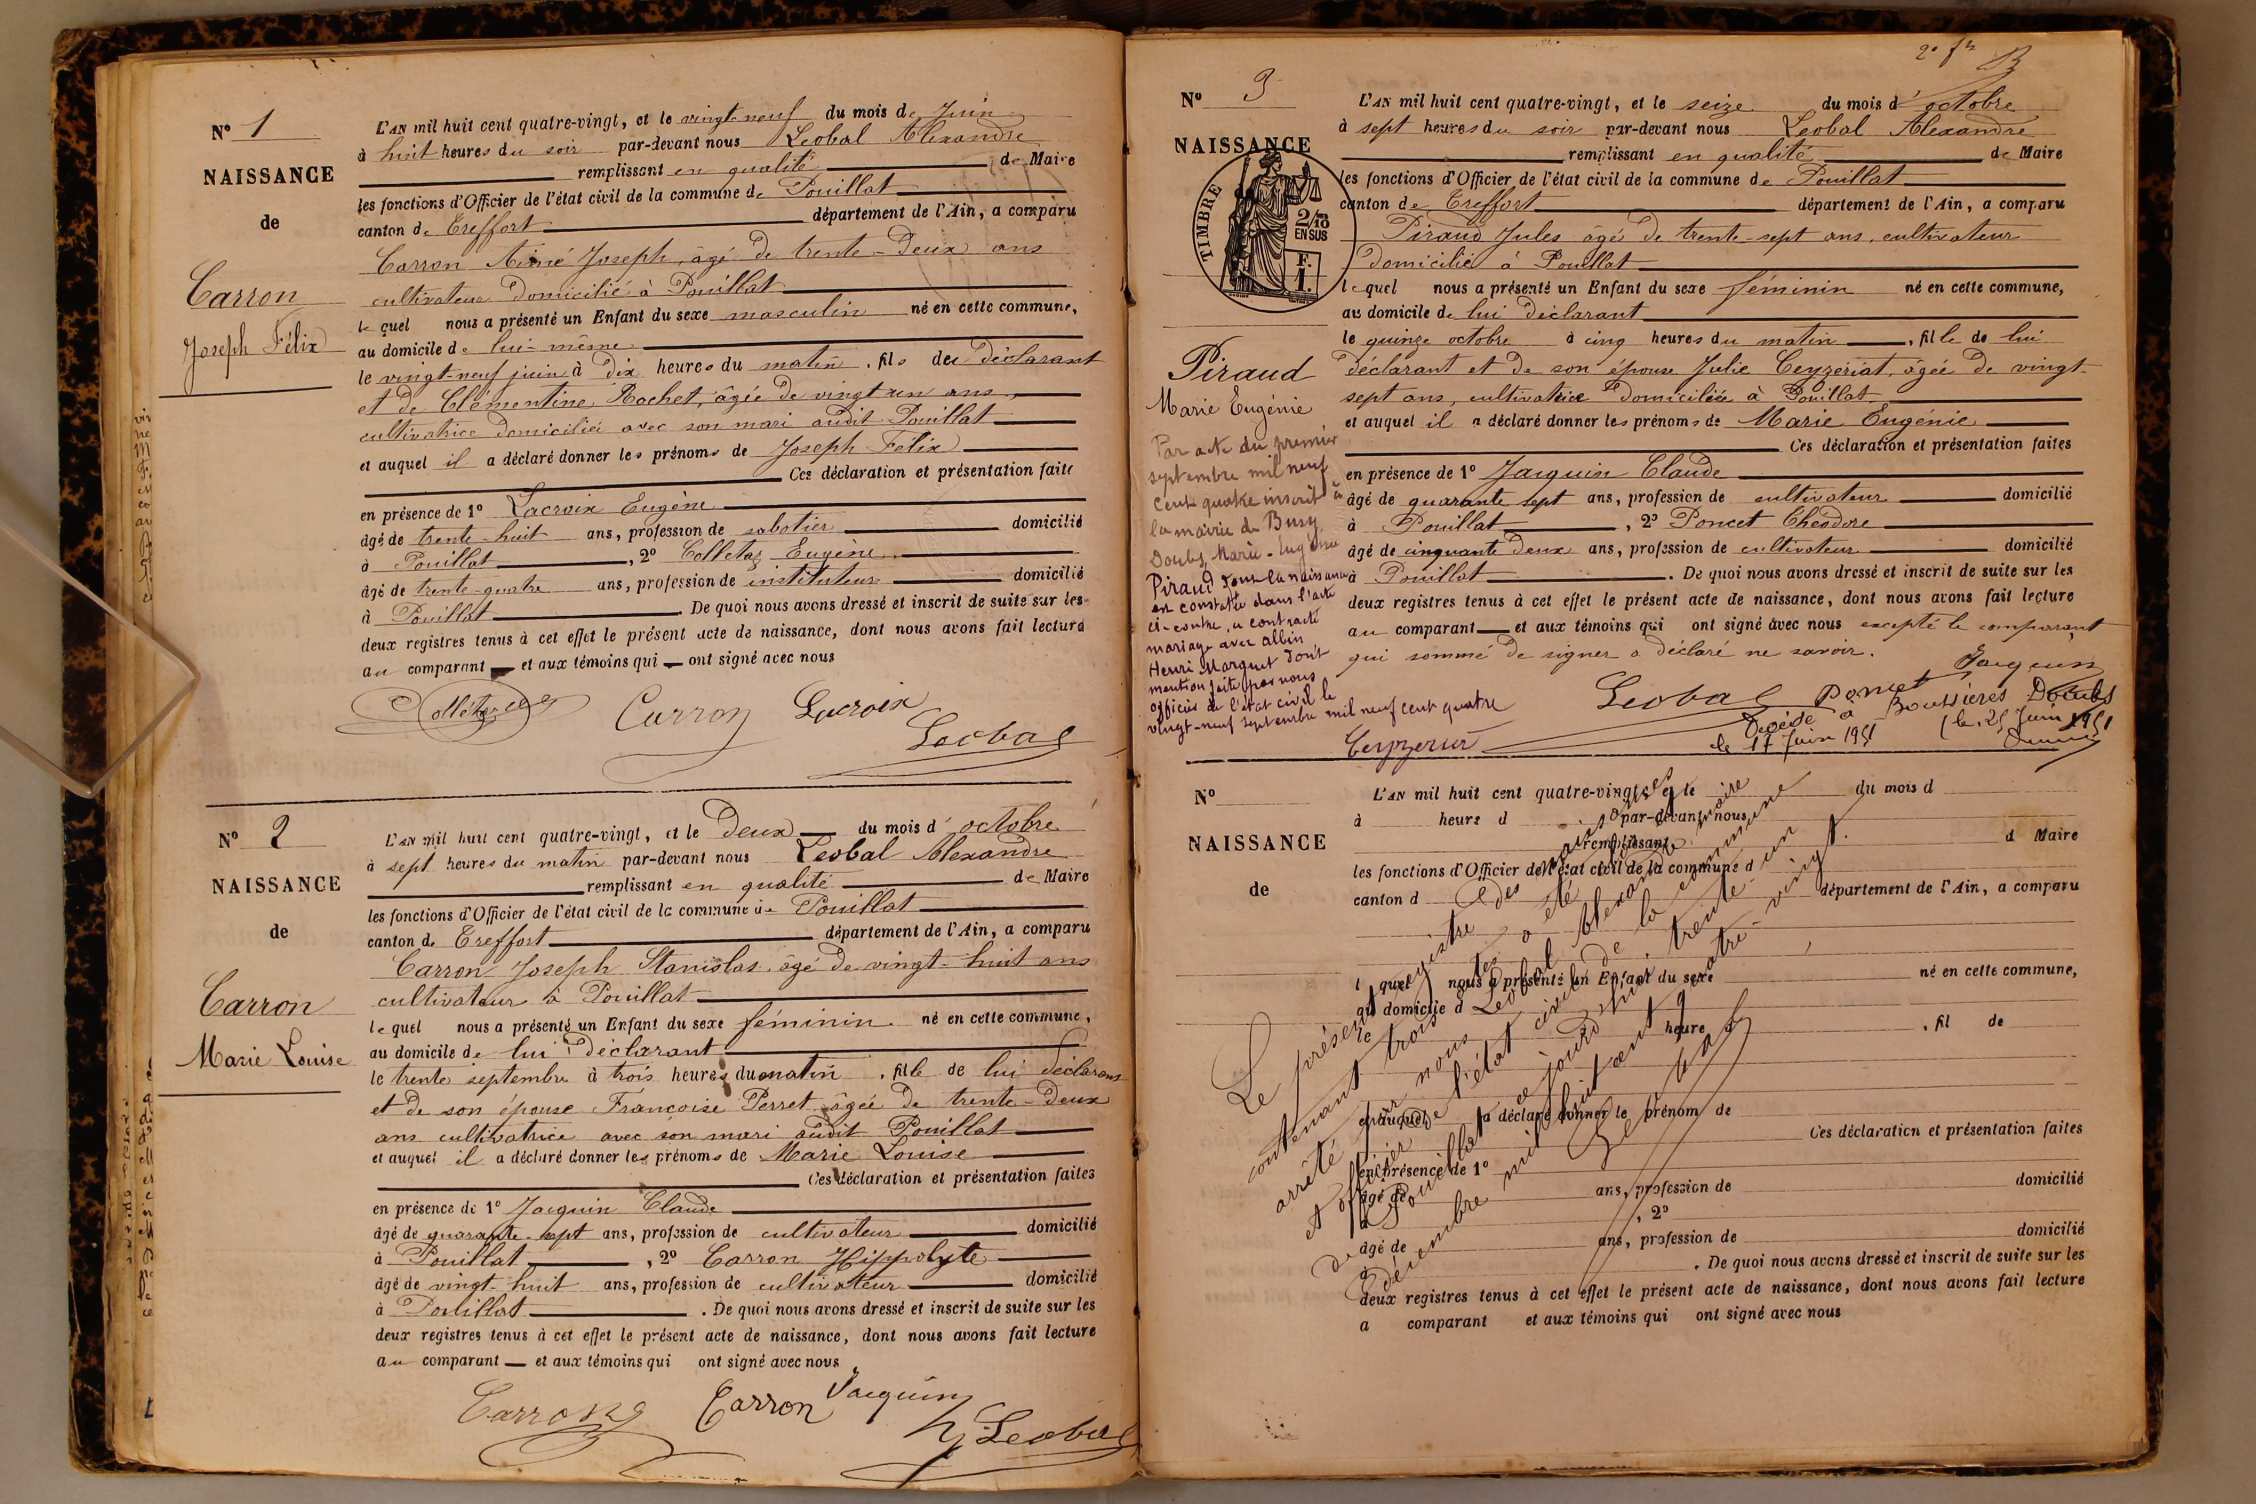 Nº 1
NAISSANCE
de
Carron
Joseph Félix
L'AN mil huit cent quatre-vingt, et le vingt-neuf du mois de Juin
à huit heures du soir par-devant nous Leobal Alexandre
remplissant en qualité de Maire
les fonctions d'Officier de l'état civil de la commune de Pouillat
canton de Treffort département de l'Ain, a comparu
Carron Aimé Joseph, âgé de trente-deux ans
cultivateur domicilié à Pouillat
lequel nous a présenté un Enfant du sexe masculin né en cette commune,
au domicile de lui-même
le vingt-neuf juin à dix heures du matin, fils du déclarant
et de Clémentine Rochet, âgée de vingt un ans,
cultivatrice domiciliée avec son mari audit Pouillat
et auquel il a déclaré donner les prénoms de Joseph Félix
Ces déclaration et présentation faite
en présence de 1º Lacroix Eugène
âgé de trente-huit ans, profession de sabotier domicilié
à Pouillat, 2º Colletaz Eugène
âgé de trente-quatre ans, profession de instituteur domicilié
à Pouillat. De quoi nous avons dressé et inscrit de suite sur les
deux registres tenus à cet effet le présent acte de naissance, dont nous avons fait lecture
au comparant et aux témoins qui ont signé avec nous
Colletaz Carron Lacroix
Leobal
Nº 2
NAISSANCE
de
Carron
Marie Louise
L'AN mil huit cent quatre-vingt, et le deux du mois d'octobre
à sept heures du matin par-devant nous Leobal Alexandre
remplissant en qualité de Maire
les fonctions d'Officier de l'état civil de la commune de Pouillat
canton de Treffort département de l'Ain, a comparu
Carron Joseph Stanislas, âgé de vingt-huit ans
cultivateur à Pouillat
lequel nous a présenté un Enfant du sexe féminin né en cette commune,
au domicile de lui déclarant
le trente septembre à trois heures du matin, fille de lui déclarant
et de son épouse Françoise Perret âgée de trente-deux
ans cultivatrice avec son mari audit Pouillat
et auquel il a déclaré donner les prénoms de Marie Louise
Ces déclaration et présentation faites
en présence de 1º Jacquin Claude
âgé de quarante-sept ans, profession de cultivateur domicilié
à Pouillat, 2º Carron Hippolyte
âgé de vingt-huit ans, profession de cultivateur domicilié
à Pouillat. De quoi nous avons dressé et inscrit de suite sur les
deux registres tenus à cet effet le présent acte de naissance, dont nous avons fait lecture
au comparant et aux témoins qui ont signé avec nous
Carron Carron Jacquin
Leobal
Nº 3
NAISSANCE
TIMBRE
2/10
EN SUS
F.
1.
Piraud
Marie Eugénie
Par acte du premier
septembre mil neuf
cent quatre inscrit à
la mairie de Busy
Doubs, Marie-Eugénie
Piraud dont la naissance
est constatée dans l'acte
ci-contre, a contracté
mariage avec Albin
Henri Marguet dont
mention faite par nous
officier de l'état civil le
vingt-neuf septembre mil neuf cent quatre
Ceyzeriat
L'AN mil huit cent quatre-vingt, et le seize du mois d'octobre
à sept heures du soir par-devant nous Leobal Alexandre
remplissant en qualité de Maire
les fonctions d'Officier de l'état civil de la commune de Pouillat
canton de Treffort département de l'Ain, a comparu
Piraud Jules âgé de trente-sept ans, cultivateur
domicilié à Pouillat
lequel nous a présenté un Enfant du sexe féminin né en cette commune,
au domicile de lui déclarant
le quinze octobre à cinq heures du matin, fille de lui
déclarant et de son épouse Julie Ceyzeriat, âgée de vingt-
sept ans, cultivatrice domiciliée à Pouillat
et auquel il a déclaré donner les prénoms de Marie Eugénie
Ces déclaration et présentation faites
en présence de 1º Jacquin Claude
âgé de quarante sept ans, profession de cultivateur domicilié
à Pouillat, 2º Poncet Théodore
âgé de cinquante deux ans, profession de cultivateur domicilié
à Pouillat. De quoi nous avons dressé et inscrit de suite sur les
deux registres tenus à cet effet le présent acte de naissance, dont nous avons fait lecture
au comparant et aux témoins qui ont signé avec nous excepté le comparant
qui sommé de signer a déclaré ne savoir.
Leobal Poncet Jacquin
Décédé à Boussières Doubs
le 17 Juin 1951 (le 25 Juin 1951
Nº
NAISSANCE
de
L'AN mil huit cent quatre-vingt, et le du mois d
à heure d par-devant nous
remplissant d Maire
les fonctions d'Officier de l'état civil de la commune d
canton d département de l'Ain, a comparu
l quel nous a présenté un Enfant du sexe né en cette commune,
au domicile d
le heure, fil de
et auquel a déclaré donner le prénom de
Ces déclaration et présentation faites
en présence de 1º
âgé de ans, profession de domicilié
à, 2º
âgé de ans, profession de domicilié
à. De quoi nous avons dressé et inscrit de suite sur les
deux registres tenus à cet effet le présent acte de naissance, dont nous avons fait lecture
a comparant et aux témoins qui ont signé avec nous
Le présent registre des naissances
contenant trois actes a été clos et
arrêté par nous Leobal Alexandre maire
et officier de l'état civil de la commune
de Pouillat ce jourd'hui trente-un
décembre mil huit cent quatre-vingt.
Leobal